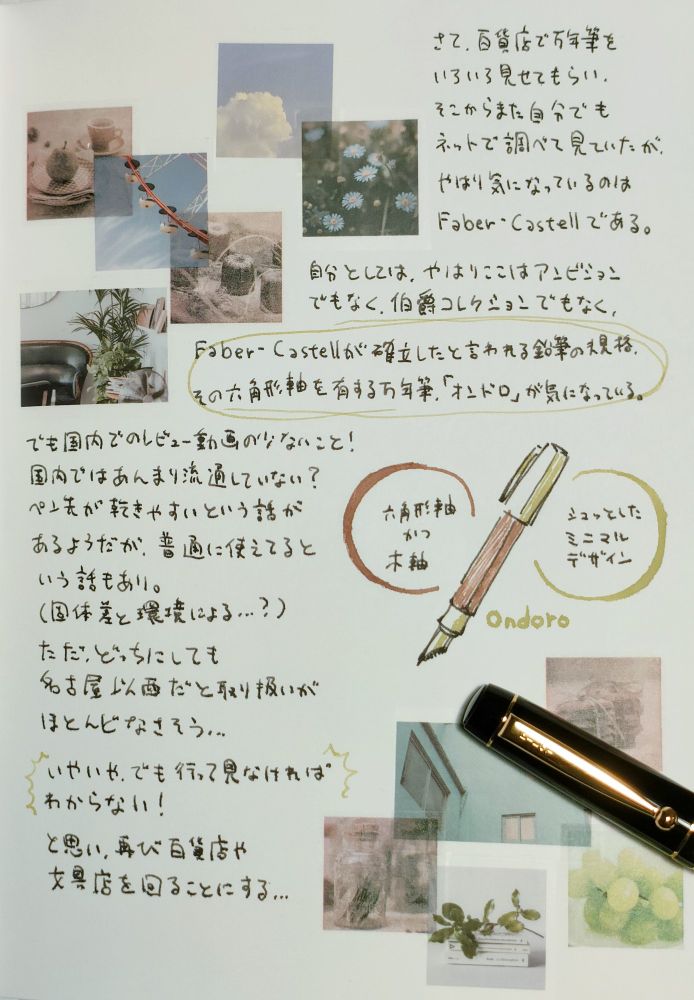 さて、百貨店で万年筆を
いろいろ見せてもらい、
そこからまた自分でも
ネットで調べて見ていたが、
やはり気になっているのは
Faber-Castellである。
自分としては、やはりここはアンビション
でもなく、伯爵コレクションでもなく、
Faber-Castellが確立したと言われる鉛筆の規格、
その六角形軸を有する万年筆、「オンドロ」が気になっている。
でも国内でのレビュー動画の少ないこと!
国内ではあんまり流通していない?
ペン先が乾きやすいという話が
あるようだが、普通に使えてると
いう話もあり。
(固体差と環境による…?)
ただ、どっちにしても
名古屋以西だと取り扱いが
ほとんどなさそう…
いやいや、でも行って見なければ
わからない!
と思い、再び百貨店や
文具店を回ることにする…
六角形軸
かつ
木軸
シュッとした
ミニマル
デザイン
Ondoro